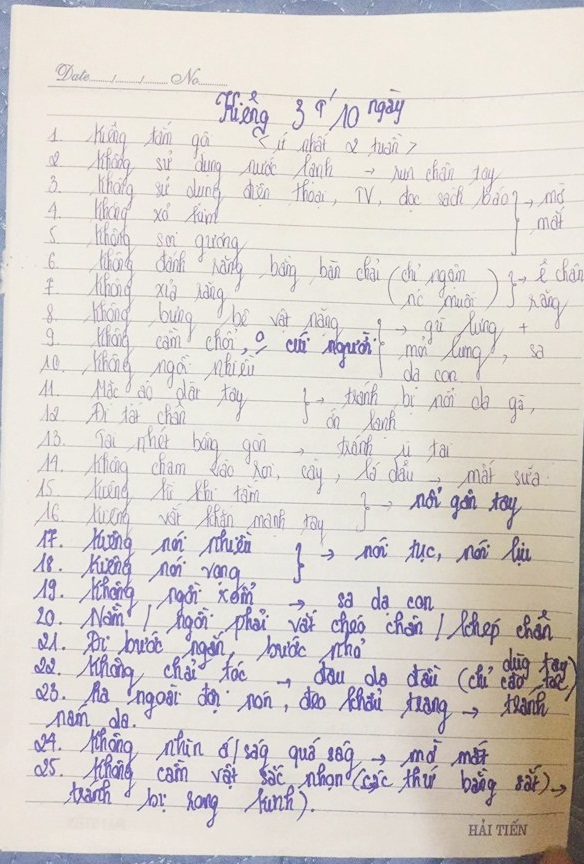 Date...../...../.....No..........
Kiêng 3 T' 10 ngày
1 Kiêng tắm gội <ít nhất 2 tuần>
2 Không sử dụng nước lạnh → run chân tay
3. Không sử dụng điện thoại, TV, đọc sách báo } → mờ mắt
4. Không xỏ kim
5. Không soi gương
6. Không đánh răng bằng bàn chải (chỉ ngậm nc muối) } → ê chân răng
7. Không xỉa răng
8. Không bưng bê vật nặng } → gù lưng + mỏi lưng, sa dạ con
9. Không cầm chổi, o cúi người
10. Không ngồi nhiều
11. Mặc áo dài tay } → tránh bị nổi da gà, ớn lạnh
12 Đi tất chân
13. Tai nhét bông gòn → tránh ù tai
14. Không chạm vào xơi, cây, lá dâu → mất sữa
15. Kiêng kì khi tắm } → nổi gân tay
16 Kiêng vắt khăn mạnh tay
17. Kiêng nói nhiều } → nói tục, nói lịu
18. Kiêng nói vọng
19. Không ngồi xổm → sa dạ con
20. Nằm / ngồi phải vắt chéo chân / khép chân
21. Đi bước ngắn, bước nhỏ
22. Không chải tóc → đau da đầu (chỉ dùg tay cào tóc)
23. Ra ngoài đội nón, đeo khẩu trang → tránh
nám da.
24. Không nhìn á/ság quá ság → mờ mắt
25. Không cầm vật sắc nhọn (các thứ bằng sắt) →
tránh bị rong kinh).
HẢI TIẾN